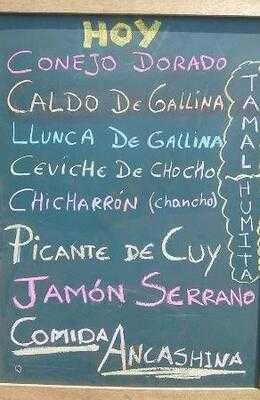 HOY
CONEJO DORADO
CALDO De GALLINA
LLUNCA DE GALLINA
CEVICHE DE CHOCHO
CHICHARRÓN (chancho)
PICANTE DE CUY
JAMÓN SERRANO
COMIDA
ANCASHINA
TAMAL
HUMITA